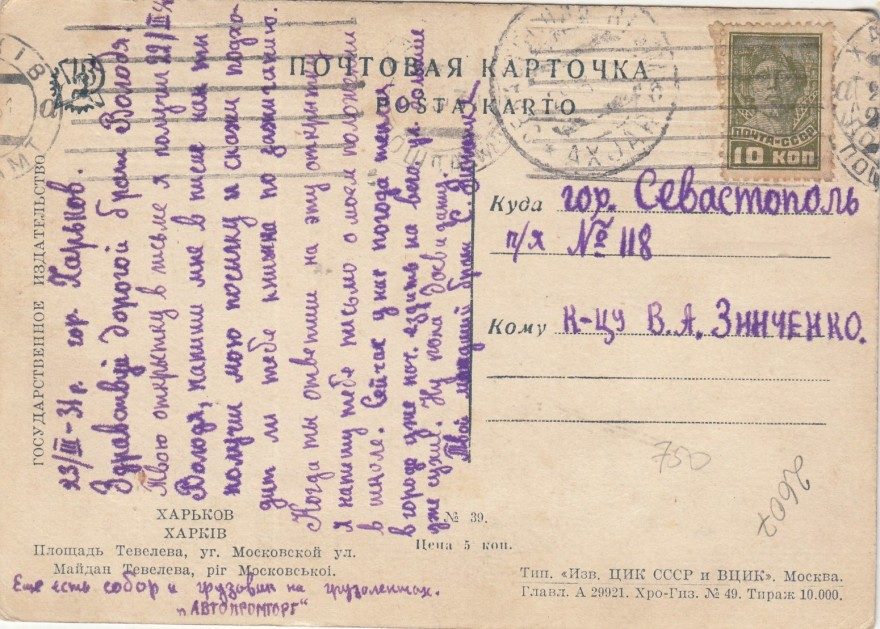 ПОЧТОВАЯ КАРТОЧКА
POSTA KARTO
ПОЧТА-СССР
10 КОП
AXJAR
ГОСУДАРСТВЕННОЕ ИЗДАТЕЛЬСТВО
23/III-31 г. гор. Харьков.
Здравствуй дорогой брат Володя.
Твою открытку в письме я получил 22/III
Володя, напиши мне в письме как ты
получил мою посылку и скажи подхо-
дит ли тебе книжка по зажиганию.
Когда ты ответиш на эту открытку
я напишу тебе письмо о моем положении
в школе. Сейчас у нас погода теплая
в городе уже поч. ездить на вело, ул. больше
уже сухие. Ну пока досвиданя.
Твой младший брат С. Зинченко
Куда гор. Севастополь
п/я № 118
Кому К-цу В. А. Зинченко.
750
2607
ХАРЬКОВ
ХАРКІВ
Площадь Тевелева, уг. Московской ул.
Майдан Тевелева, ріг Московської.
№ 39.
Цена 5 коп.
Еще есть собор и грузовик на грузолентах.
"АВТОПРОМТОРГ"
Тип. «Изв. ЦИК СССР и ВЦИК». Москва.
Главл. А 29921. Хро-Гиз. № 49. Тираж 10.000.